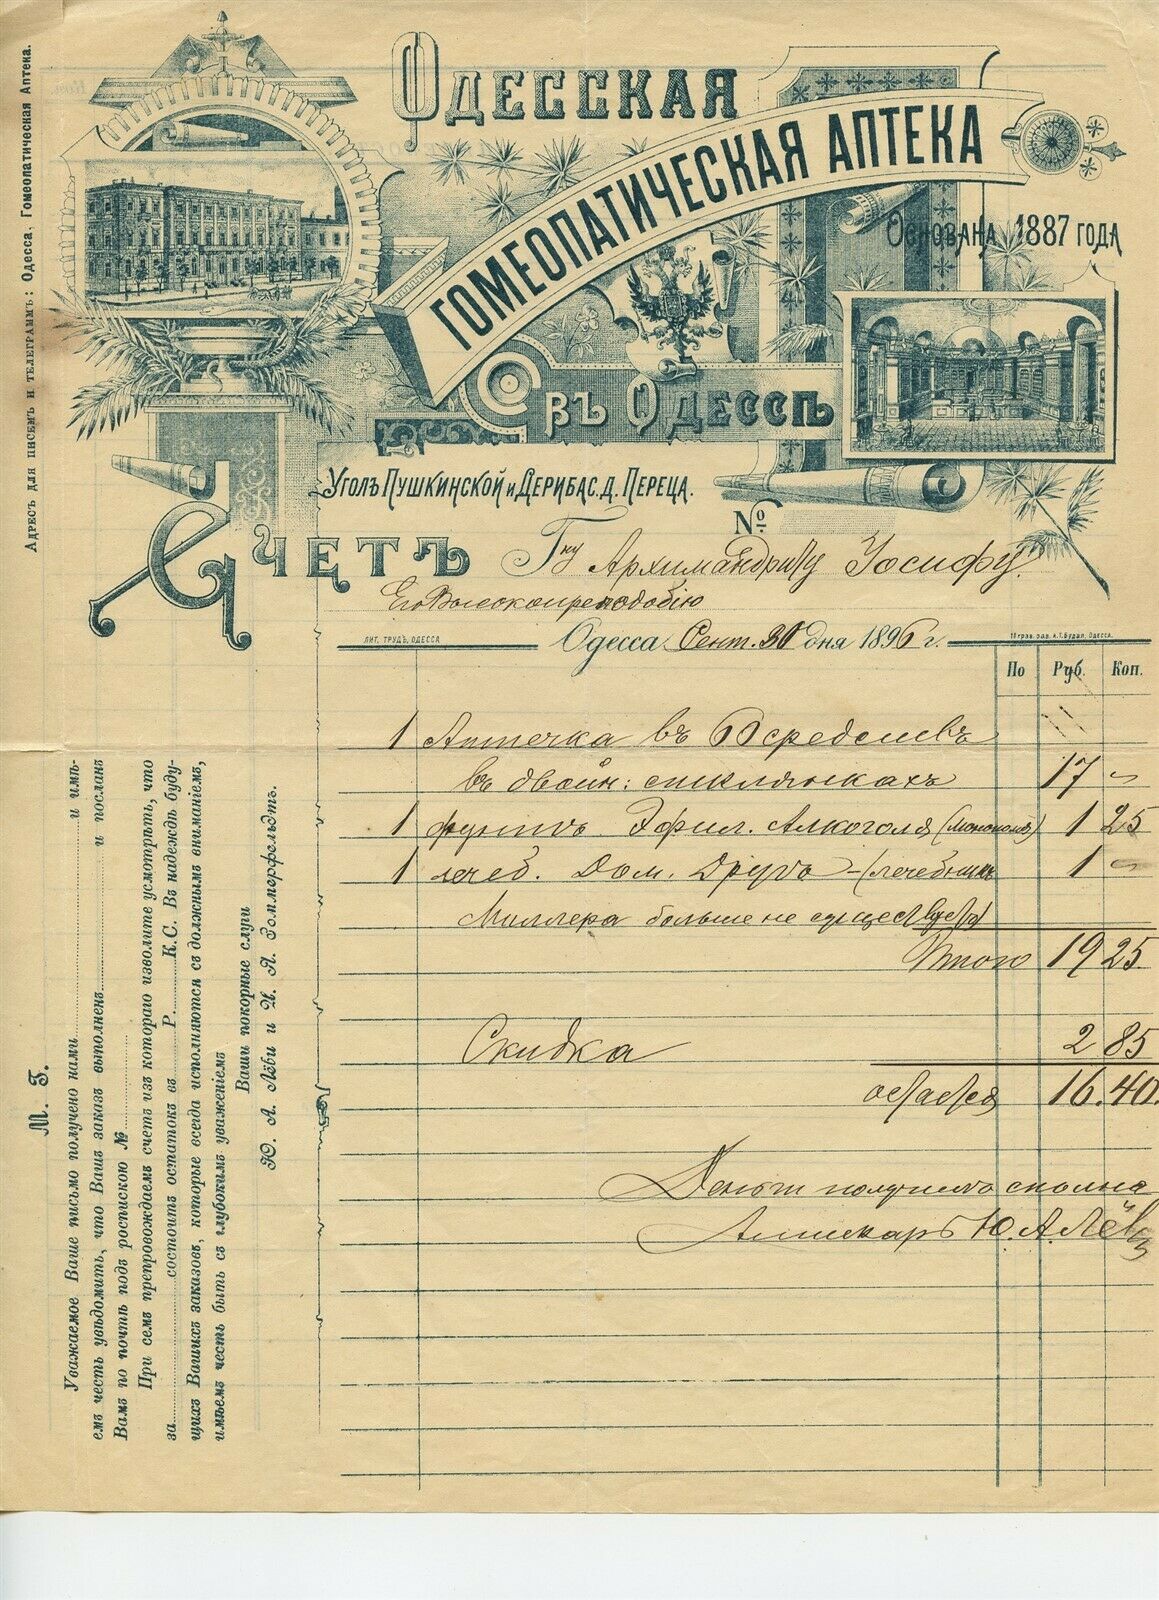 Одесская
Гомеопатическая Аптека
Основана 1887 года
въ Одессѣ
Уголъ Пушкинской и Дерибас. д. Переца.
№
Счетъ Гну Архимандриту Іосифу.
Его Высокопреподобію
Лит. Трудъ, Одесса.
Одесса Сент. 30 дня 1896 г.
По Руб. Коп.
1 Аптечка въ
въ двойн: стклянкахъ 17 –
1 фунтъ Эфил. Алкоголя 1 25
1 лечеб. Дом. Другъ – (лечебникъ 1 –
Миллера больше не существуетъ)
Итого 19 25
Скидка 2 85
остается 16.40.
Деньги получилъ сполна
Аптекарь Ю. А. Лёви
Адресъ для писемъ и телеграммъ: Одесса, Гомеопатическая Аптека.
М. Г.
Уважаемое Ваше письмо получено нами и имѣ-
емъ честь увѣдомить, что Вашъ заказъ выполненъ и посланъ
Вамъ по почтѣ подъ роспискою №
При семъ препровождаемъ счетъ изъ котораго изволите усмотрѣть, что
за состоитъ остатокъ въ Р. К.С. Въ надеждѣ буду-
щихъ Вашихъ заказовъ, которые всегда исполняются съ должнымъ вниманіемъ,
имѣемъ честь быть съ глубокимъ уваженіемъ
Ваши покорные слуги
Ю. А. Лёви и И. Я. Зоммерфельдтъ.